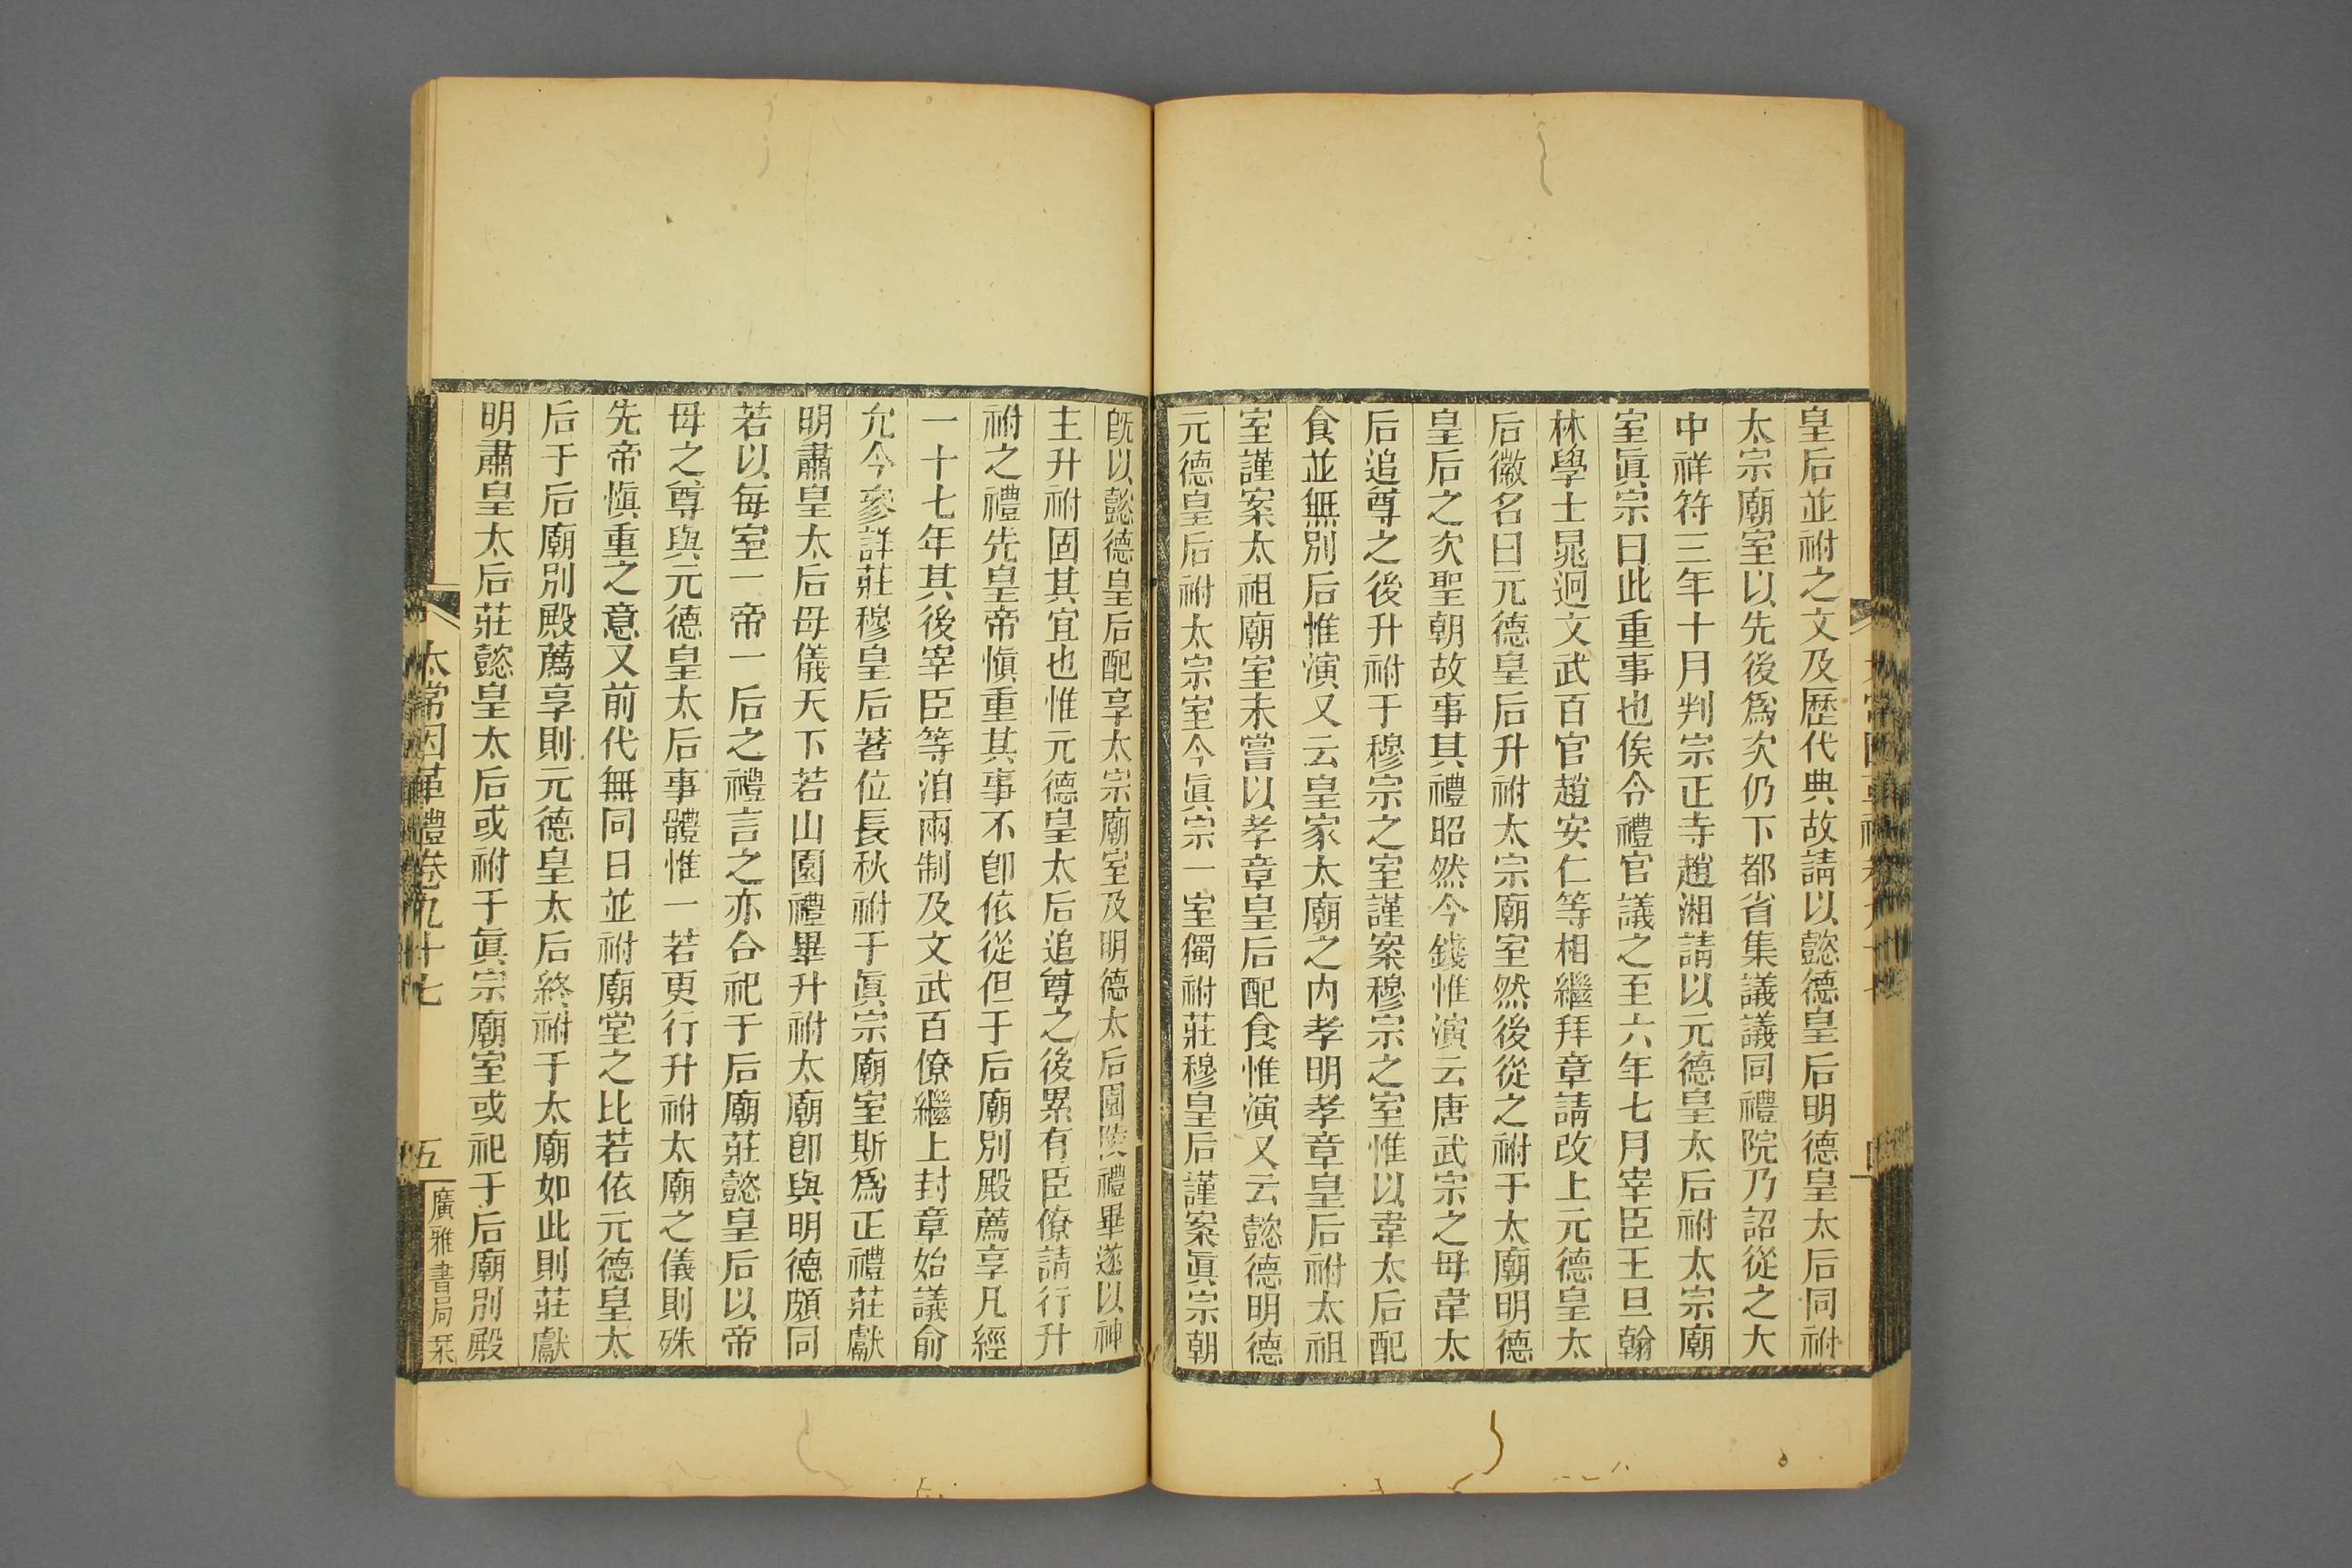 皇后並祔之文及歷代典故請以懿德皇后明德皇太后同祔
太宗廟室以先後爲次仍下都省集議議同禮院乃詔從之大
中祥符三年十月判宗正寺趙湘請以元德皇太后祔太宗廟
室眞宗曰此重事也俟令禮官議之至六年七月宰臣王旦翰
林學士晁迥文武百官趙安仁等相繼拜章請改上元德皇太
后徽名曰元德皇后升祔太宗廟室然後從之祔于太廟明德
皇后之次聖朝故事其禮昭然今錢惟演云唐武宗之母韋太
后追尊之後升祔于穆宗之室謹案穆宗之室惟以韋太后配
食並無別后惟演又云皇家太廟之內孝明孝章皇后祔太祖
室謹案太祖廟室未嘗以孝章皇后配食惟演又云懿德明德
元德皇后祔太宗室今眞宗一室獨祔莊穆皇后謹案眞宗朝
旣以懿德皇后配享太宗廟室及明德太后園陵禮畢遂以神
主升祔固其宜也惟元德皇太后追尊之後累有臣僚請行升
祔之禮先皇帝愼重其事不卽依從但于后廟別殿薦享凡經
一十七年其後宰臣等洎兩制及文武百僚繼上封章始議俞
允今參詳莊穆皇后著位長秋祔于眞宗廟室斯爲正禮莊獻
明肅皇太后母儀天下若山園禮畢升祔太廟卽與明德頗同
若以每室一帝一后之禮言之亦合祀于后廟莊懿皇后以帝
母之尊與元德皇太后事體惟一若更行升祔太廟之儀則殊
先帝愼重之意又前代無同日並祔廟堂之比若依元德皇太
后于后廟別殿薦享則元德皇太后終祔于太廟如此則莊獻
明肅皇太后莊懿皇太后或祔于眞宗廟室或祀于后廟別殿
太常因革禮卷九十七
五
廣雅書局栞